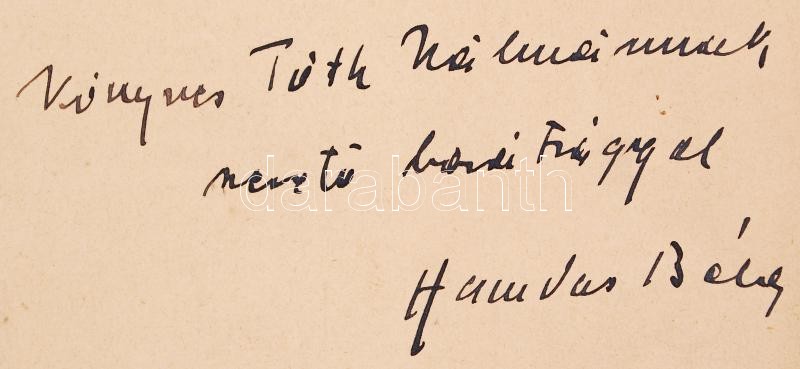 Könyves Tóth Kálmánnak,
szerető barátsággal
Hamvas Béla
darabanth